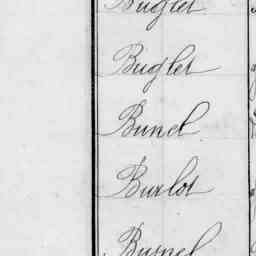 Buglet
Buglet
Bunel
Burlot
Busnel